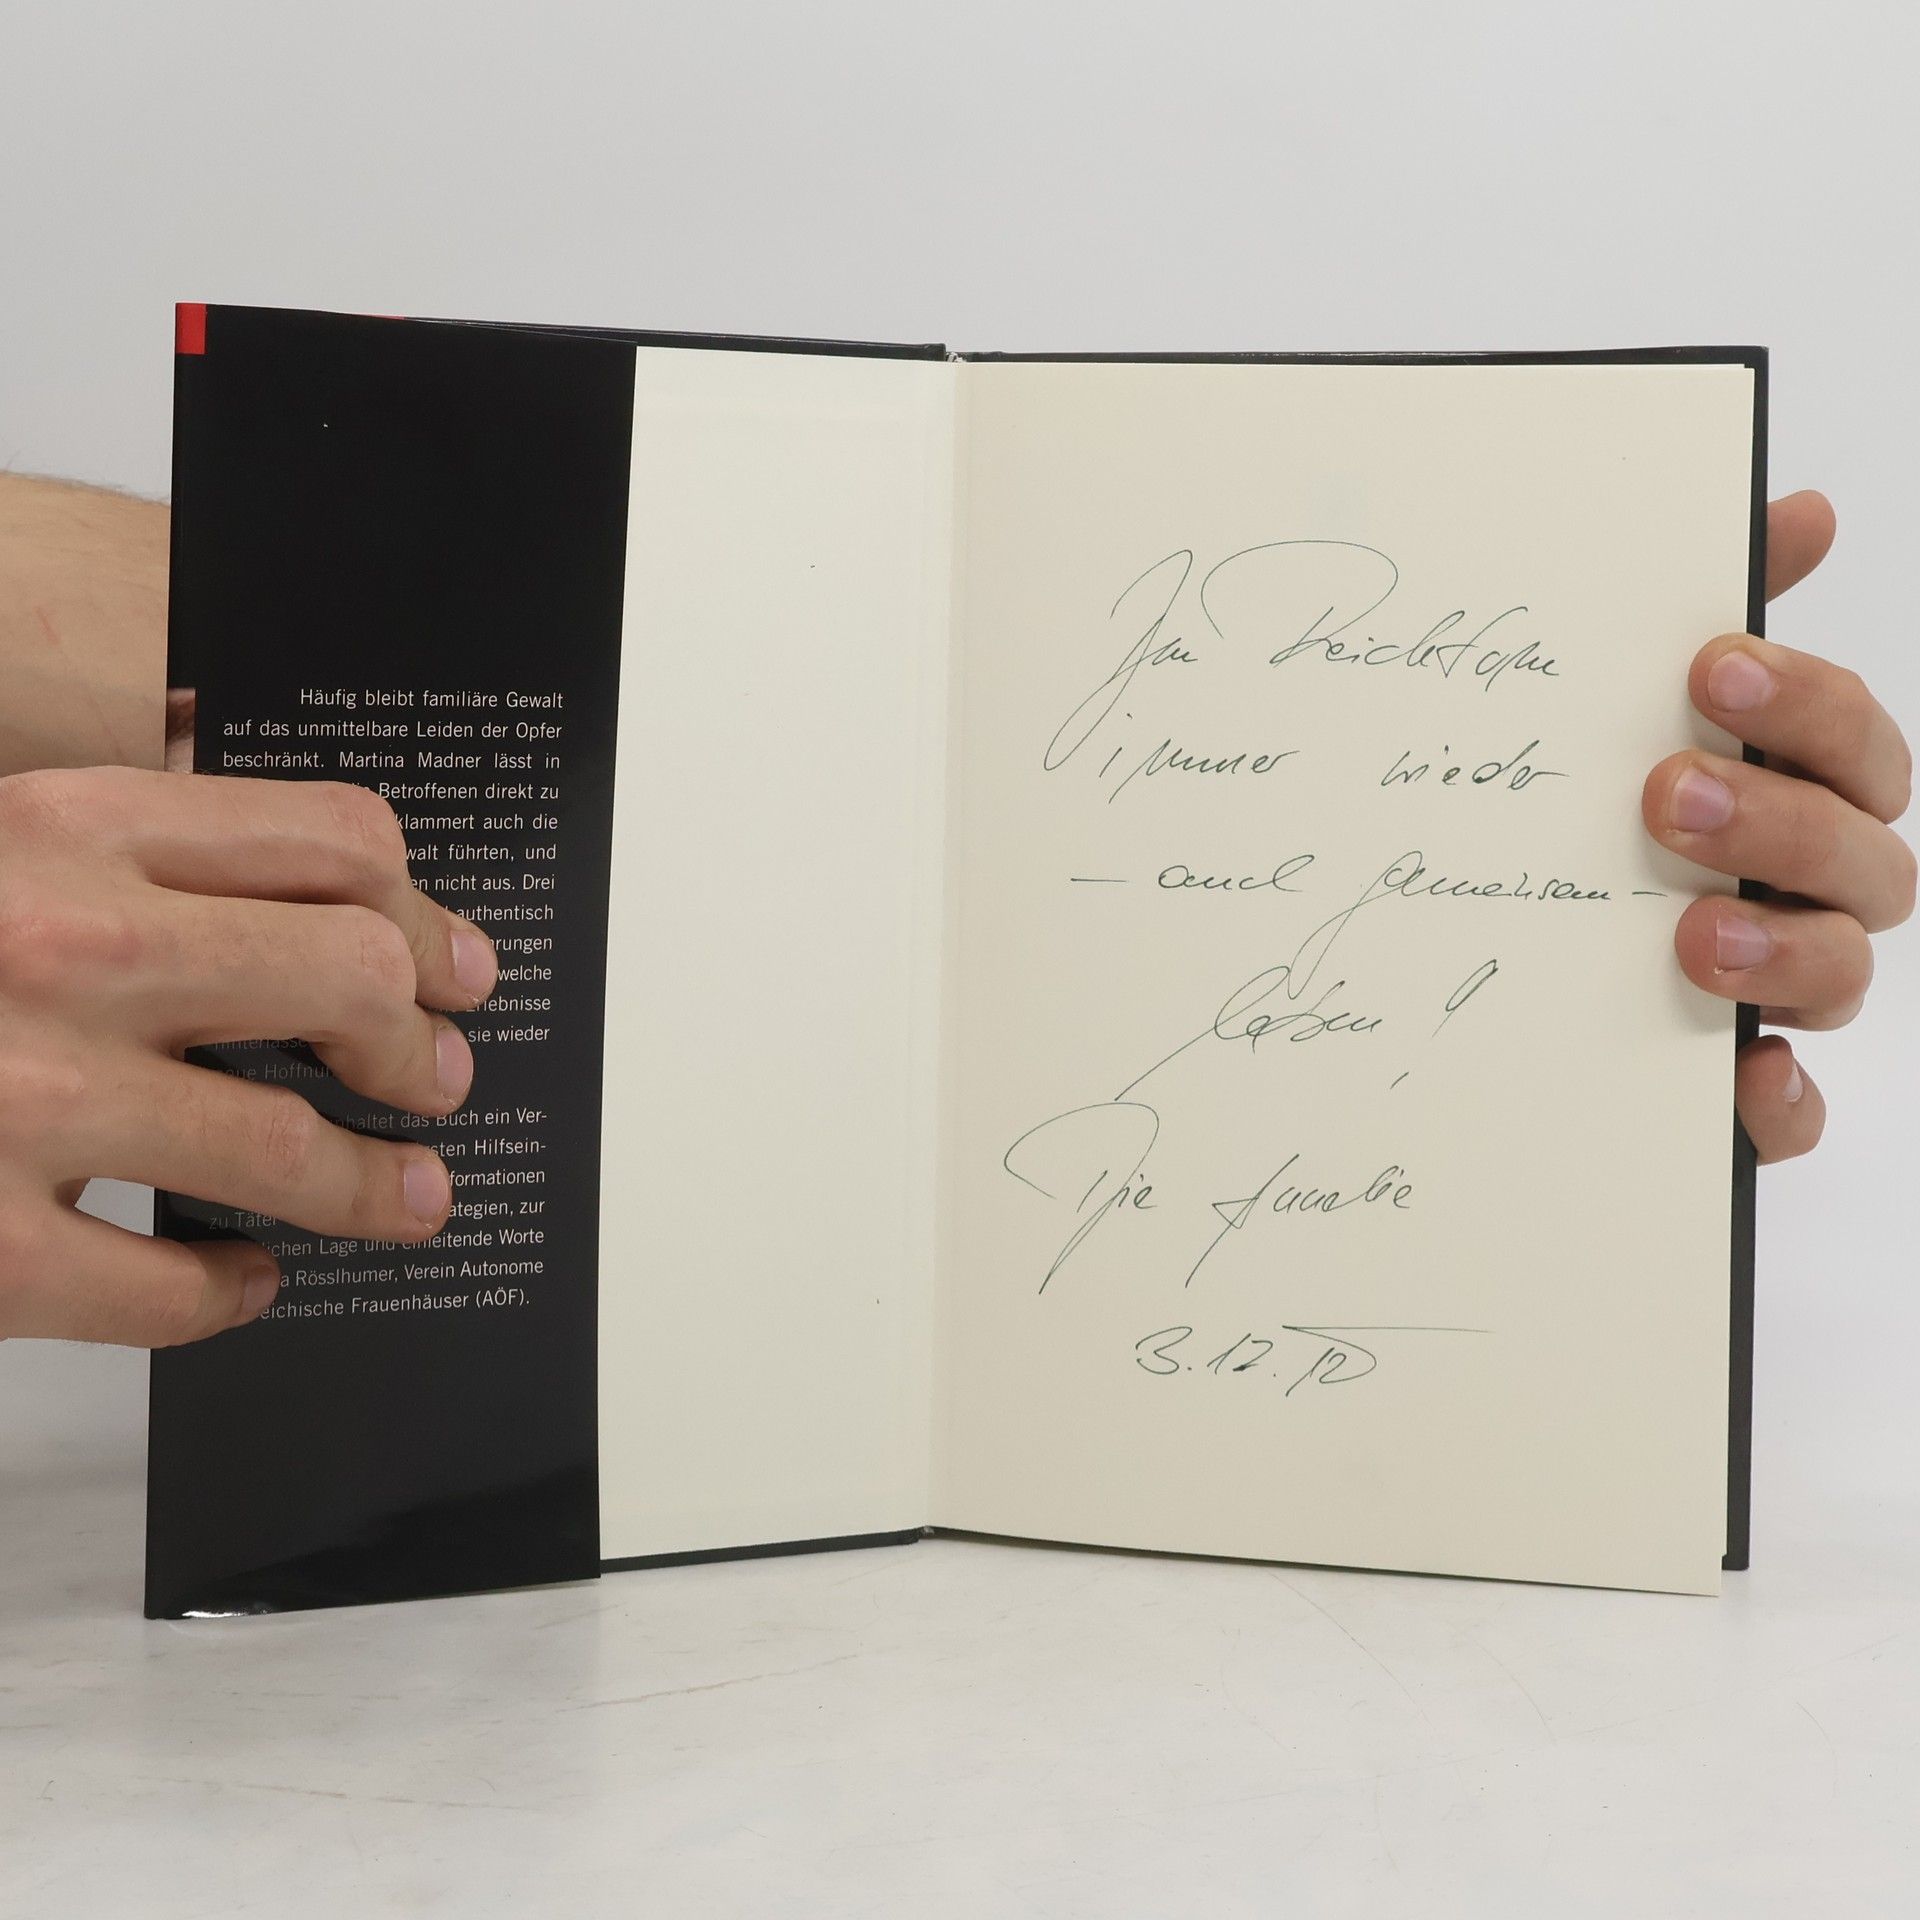 Häufig bleibt familiäre Gewalt
auf das unmittelbare Leiden der Opfer
beschränkt. Martina Madner lässt in
Betroffenen direkt zu
klammert auch die
walt führten, und
en nicht aus. Drei
authentisch
hrungen
welche
Erlebnisse
hinterlassen sie wieder
neue Hoffnun
nhaltet das Buch ein Ver-
sten Hilfsein-
formationen
zu Täter ategien, zur
lichen Lage und einleitende Worte
a Rösslhumer, Verein Autonome
eichische Frauenhäuser (AÖF).
immer wieder
— und gemeinsam —
leben!
Die
3.12.